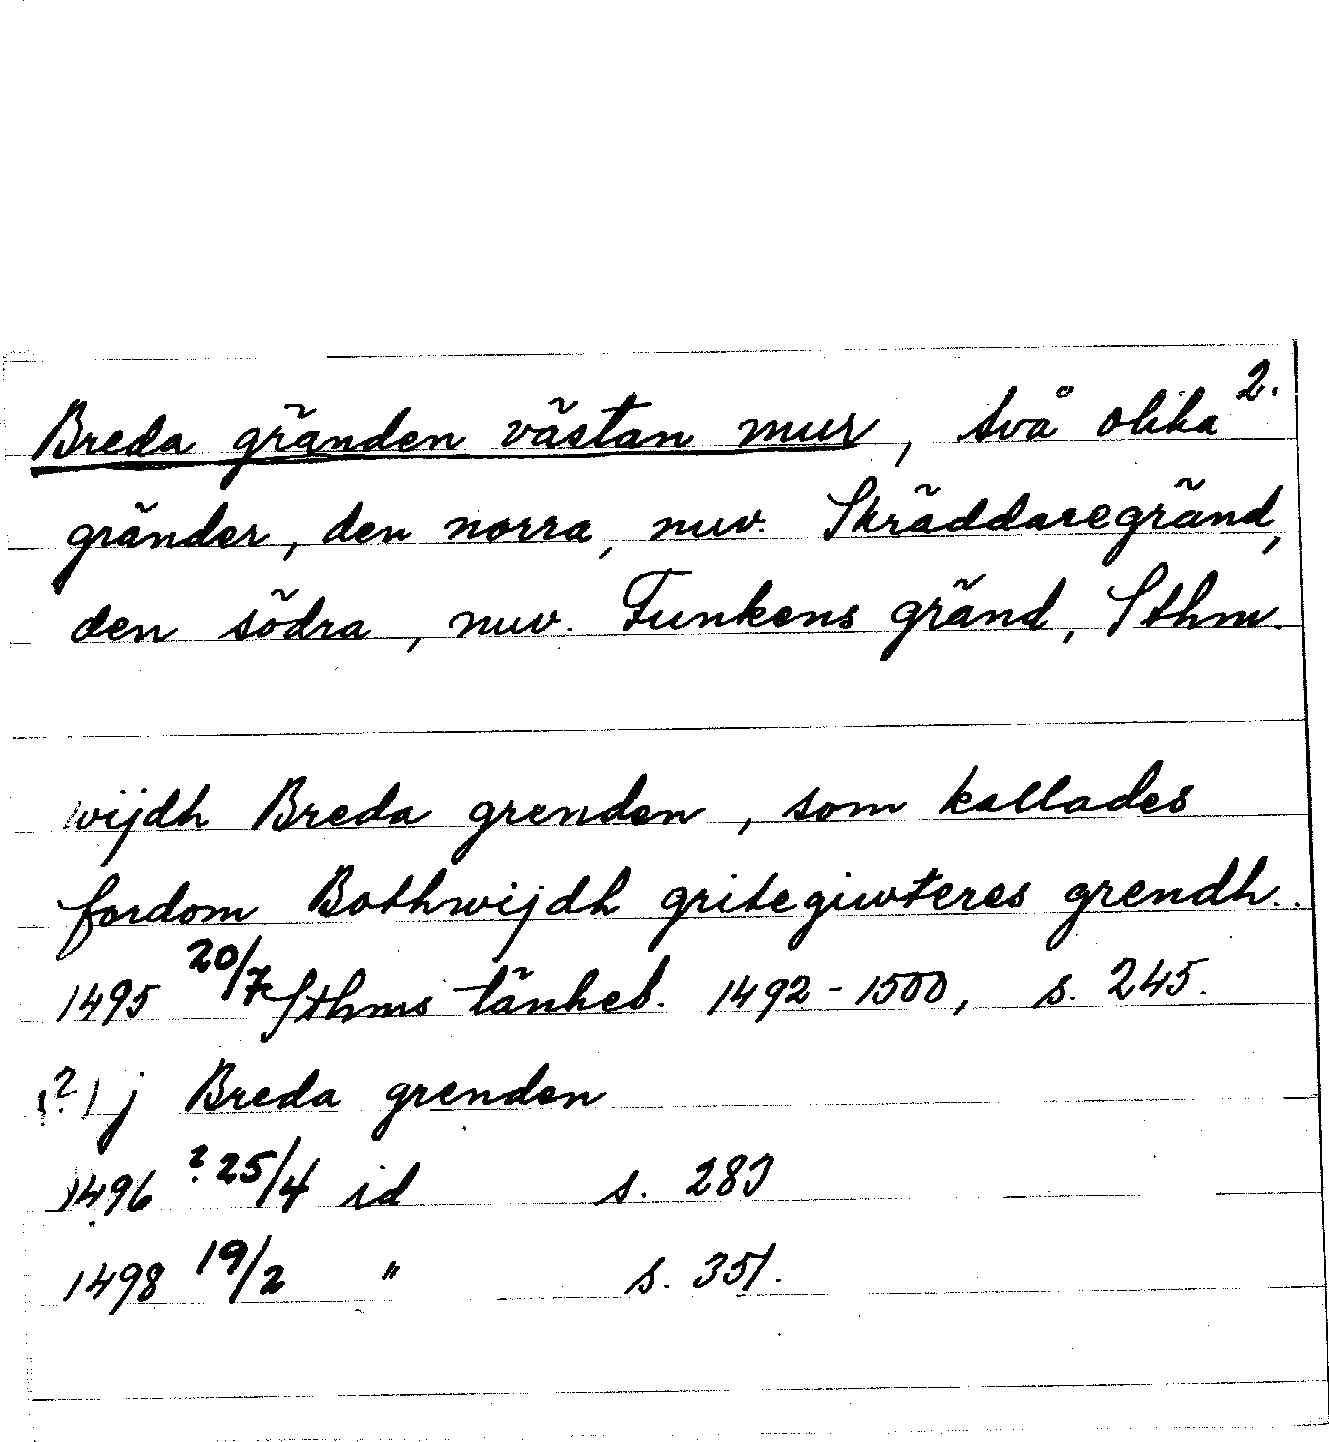 2.
Breda gränden västan mur, två olika
gränder, den norra, nuv. Skräddaregränd,
den södra, nuv. Funkens gränd, Sthm.
wijdh Breda grenden, som kallades
fordom Bothwijdh gritegiwteres grendh..
1495 20/7 Sthms tänkeb. 1492-1500, s. 245.
(?) j Breda grenden
1496 ? 25/4 id s. 283
1498 19/2 " s. 351.